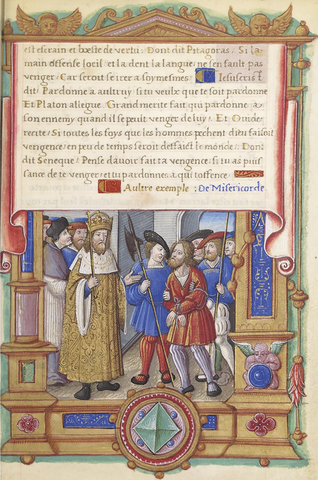 est escrain et boeste de vertu. Dont dit Pitagoras. Si la
main offense loeil et la dent la langue ne sen fault pas
venger. Car seroit se irer a soymesmes. Jesuscrist
dit. Pardonne a aultruy si tu veulx que te soit pardonne
Et Platon allegue. Grand merite fait qui pardonne a
son ennemy quand il se peult venger de luy. Et Ouide
recite. Si toutes les foys que les hommes pechent dieu faisoit
vengence en peu de temps seroit deffaict le monde. Dont
dit Seneque. Pense dauoir fait ta vengence si tu as puis
sance de te venger et tu pardonnes a qui toffence
Aultre exemple De Misericorde